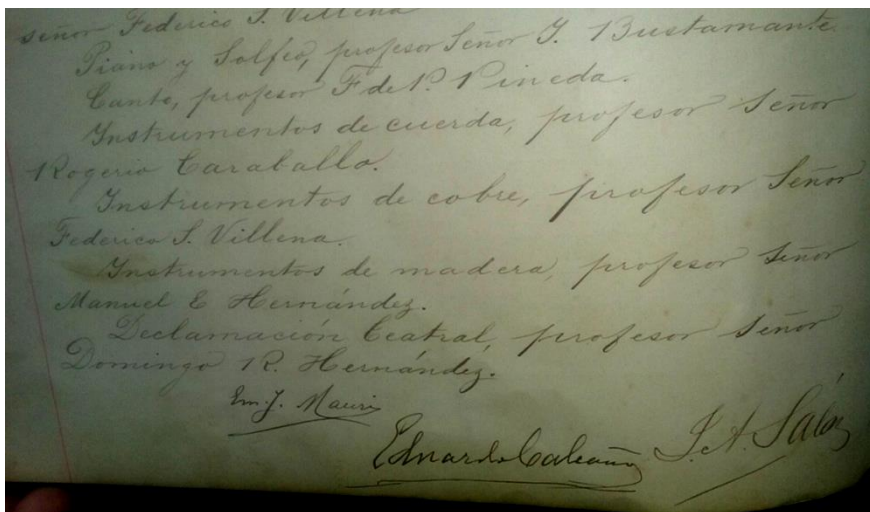 señor Federico S. Villena
Piano y Solfeo, profesor Señor I. Bustamante.
Canto, profesor F de P. Pineda.
Instrumentos de cuerda, profesor Señor
Rogerio Caraballo.
Instrumentos de cobre, profesor Señor
Federico S. Villena.
Instrumentos de madera, profesor Señor
Manuel E Hernández.
Declamación Teatral, profesor Señor
Domingo R. Hernández.
Em. J. Mauri
Eduardo Calcaño